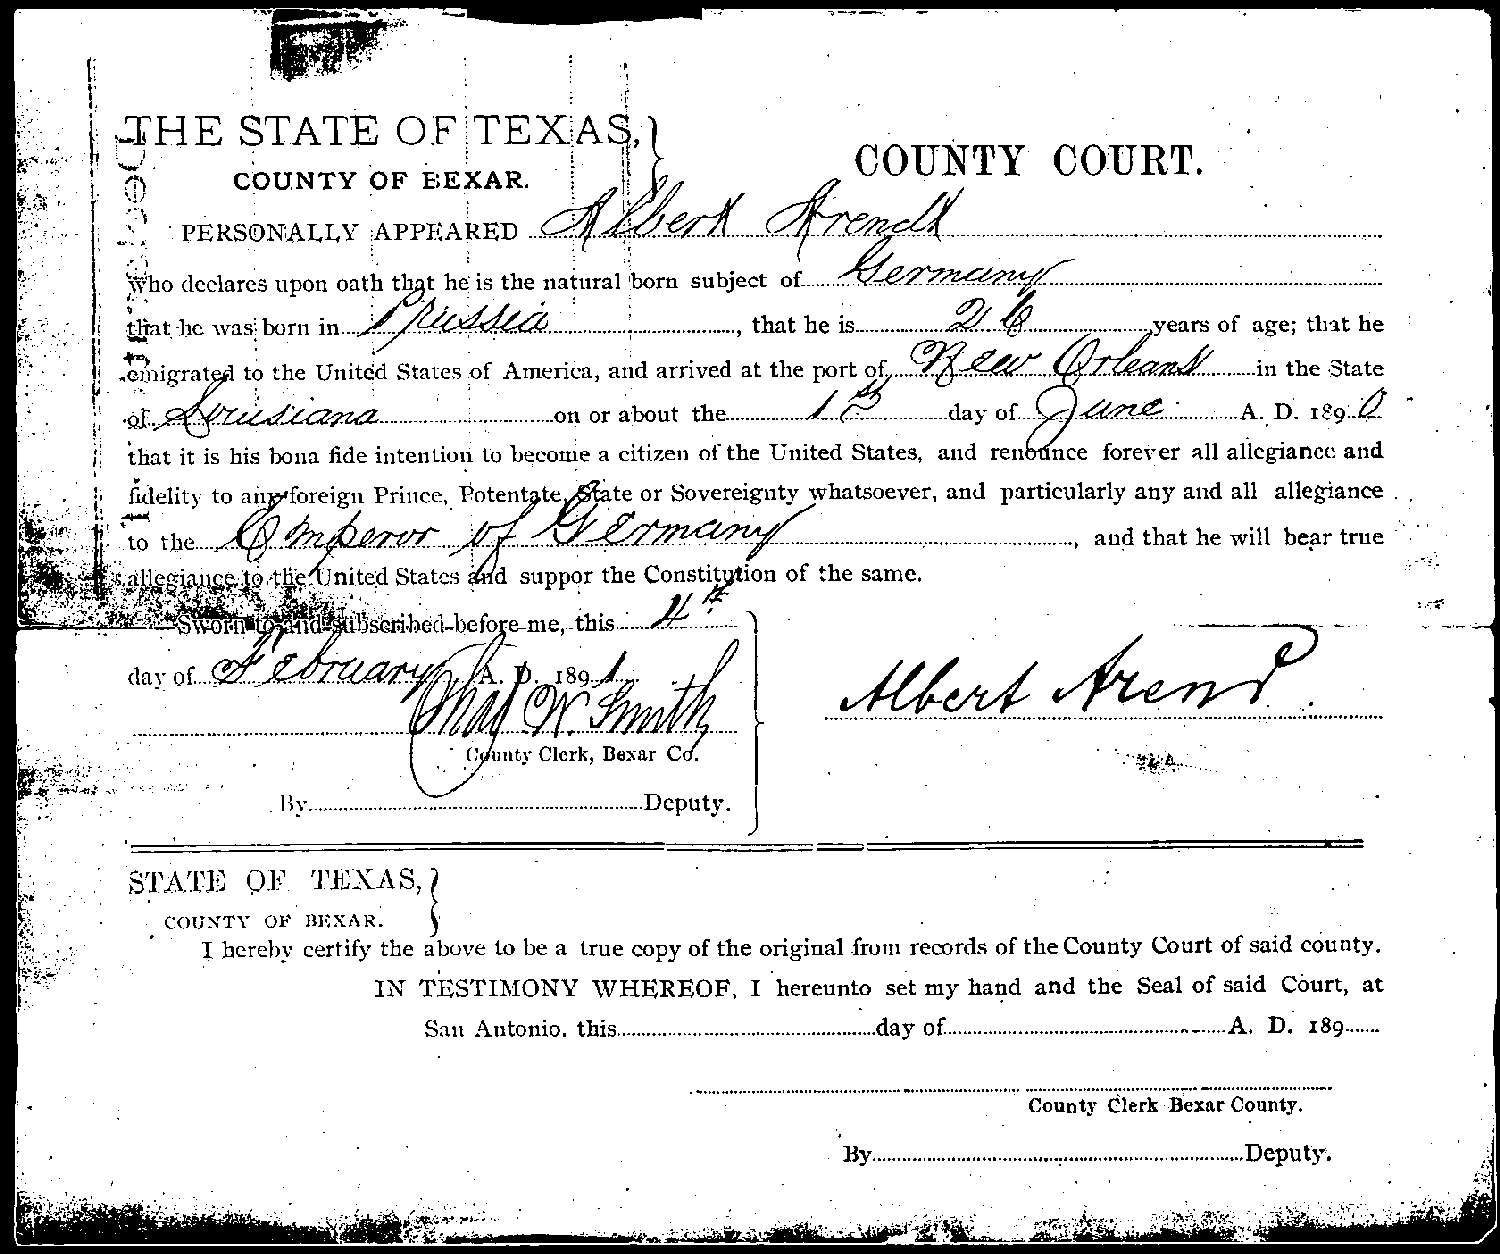 THE STATE OF TEXAS,
COUNTY OF BEXAR.
COUNTY COURT.
PERSONALLY APPEARED Albert Arendt
who declares upon oath that he is the natural born subject of Germany
that he was born in Prussia, that he is 26 years of age; that he
emigrated to the United States of America, and arrived at the port of New Orleans in the State
of Louisiana on or about the 1st day of June A. D. 1890
that it is his bona fide intention to become a citizen of the United States, and renounce forever all allegiance and
fidelity to any foreign Prince, Potentate, State or Sovereignty whatsoever, and particularly any and all allegiance
to the Emperor of Germany, and that he will bear true
allegiance to the United States and suppor the Constitution of the same.
Sworn to and subscribed before me, this 4th
day of February A. D. 1891
Chas W. Smith
County Clerk, Bexar Co.
By Deputy.
Albert Arend
STATE OF TEXAS,
COUNTY OF BEXAR.
I hereby certify the above to be a true copy of the original from records of the County Court of said county.
IN TESTIMONY WHEREOF, I hereunto set my hand and the Seal of said Court, at
San Antonio, this day of A. D. 189
County Clerk Bexar County.
By Deputy.